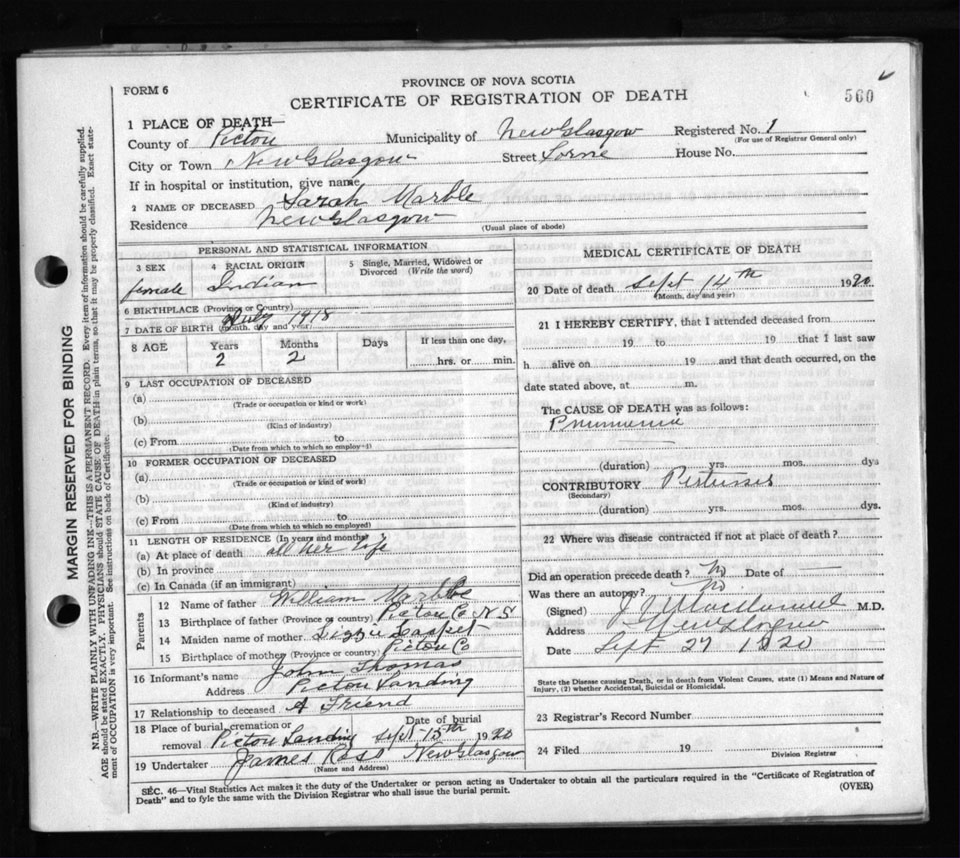 PROVINCE OF NOVA SCOTIA
FORM 6
CERTIFICATE OF REGISTRATION OF DEATH
560
1 PLACE OF DEATH—
County of Pictou Municipality of New Glasgow Registered No. 1
(For use of Registrar General only)
City or Town New Glasgow Street Lorne House No.
If in hospital or institution, give name
2 NAME OF DECEASED Sarah Marble
Residence New Glasgow
(Usual place of abode)
PERSONAL AND STATISTICAL INFORMATION
3 SEX 4 RACIAL ORIGIN 5 Single, Married, Widowed or Divorced (Write the word)
female Indian
6 BIRTHPLACE (Province or Country)
7 DATE OF BIRTH (month, day and year) 1918
8 AGE Years Months Days If less than one day,
2 2 hrs. or min.
9 LAST OCCUPATION OF DECEASED
(a)
(Trade or occupation or kind or work)
(b)
(Kind of industry)
(c) From to
(Date from which to which so employed)
10 FORMER OCCUPATION OF DECEASED
(a)
(Trade or occupation or kind of work)
(b)
(Kind of industry)
(c) From to
(Date from which to which so employed)
11 LENGTH OF RESIDENCE (In years and months)
(a) At place of death all her life
(b) In province
(c) In Canada (if an immigrant)
Parents
12 Name of father William Marble
13 Birthplace of father (Province or country) Pictou Co N S
14 Maiden name of mother Lizzie
15 Birthplace of mother (Province or country) Pictou Co
16 Informant's name John Thomas
Address Pictou Landing
17 Relationship to deceased A Friend
18 Place of burial, cremation or Date of burial
removal Pictou Landing Sept 15th 1920
19 Undertaker James Ross New Glasgow
(Name and Address)
MEDICAL CERTIFICATE OF DEATH
20 Date of death Sept 14th 1920
(Month, day and year)
21 I HEREBY CERTIFY, that I attended deceased from
19 to 19 that I last saw
h alive on 19 and that death occurred, on the
date stated above, at m.
The CAUSE OF DEATH was as follows:
Pneumonia
(duration) yrs. mos. dys
CONTRIBUTORY Pertussis
(Secondary)
(duration) yrs. mos. dys.
22 Where was disease contracted if not at place of death?
Did an operation precede death? No Date of
Was there an autopsy? No
(Signed) M.D.
Address New Glasgow
Date Sept 27 1920
State the Disease causing Death, or in death from Violent Causes, state (1) Means and Nature of
Injury, (2) whether Accidental, Suicidal or Homicidal.
23 Registrar's Record Number
24 Filed 19
Division Registrar
SEC. 46—Vital Statistics Act makes it the duty of the Undertaker or person acting as Undertaker to obtain all the particulars required in the "Certificate of Registration of
Death" and to fyle the same with the Division Registrar who shall issue the burial permit. (OVER)
MARGIN RESERVED FOR BINDING
N.B.—WRITE PLAINLY WITH UNFADING INK—THIS IS A PERMANENT RECORD. Every item of information should be carefully supplied.
AGE should be stated EXACTLY. PHYSICIANS should STATE CAUSE OF DEATH in plain terms, so that it may be properly classified. Exact state-
ment of OCCUPATION is very important. See instructions on back of Certificate.